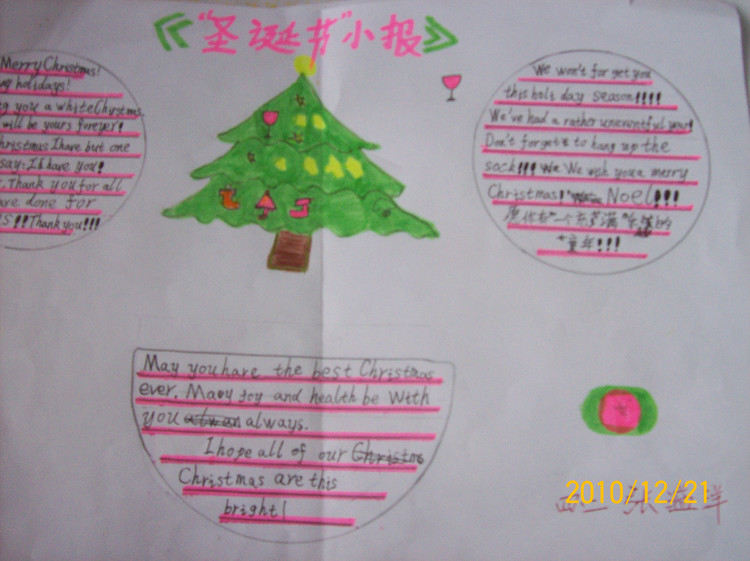 "圣诞节"小报
Merry Christmas!
holidays!
you a white Chrystmas
will be yours foreyer!
hristmas I have but one
say: I h have you!
Thank you for all
are done for
!! Thank you!!!
We won't for get you
this holi day season!!!!
We've had a rather uneventful year!
Don't forget to hang up the
sock!!! We We wish you a merry
Christmas! Noel!!!
愿你有一个充满的
童年!!!
May you have the best Christmas
ever. Many joy and health be with
you always.
I hope all of our Christm
Christmas are this
bright!
2010/12/21
张